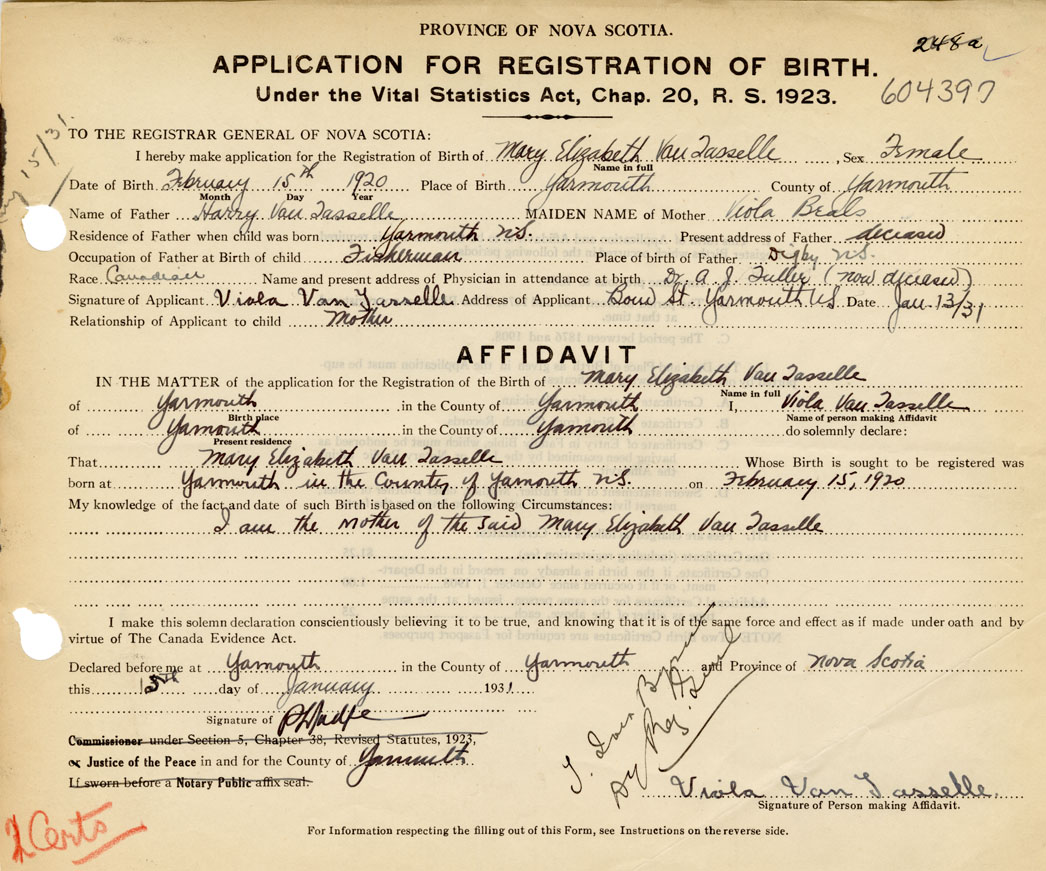 PROVINCE OF NOVA SCOTIA.
248a
APPLICATION FOR REGISTRATION OF BIRTH.
Under the Vital Statistics Act, Chap. 20, R. S. 1923.
604397
15/31.
TO THE REGISTRAR GENERAL OF NOVA SCOTIA:
I hereby make application for the Registration of Birth of Mary Elizabeth Van Tasselle, Sex Female
Name in full
Date of Birth February 15th 1920 Place of Birth Yarmouth County of Yarmouth
Month Day Year
Name of Father Harry Van Tasselle MAIDEN NAME of Mother Viola Beals
Residence of Father when child was born Yarmouth N.S. Present address of Father deceased
Occupation of Father at Birth of child Fisherman Place of birth of Father Digby N.S.
Race Canadian Name and present address of Physician in attendance at birth Dr. A. J. Fuller (now deceased)
Signature of Applicant Viola Van Tasselle Address of Applicant Bow St. Yarmouth NS Date Jan 13/31
Relationship of Applicant to child Mother
AFFIDAVIT
IN THE MATTER of the application for the Registration of the Birth of Mary Elizabeth Van Tasselle
Name in full
of Yarmouth in the County of Yarmouth I, Viola Van Tasselle
Birth place Name of person making Affidavit
of Yarmouth in the County of Yarmouth do solemnly declare:
Present residence
That Mary Elizabeth Van Tasselle Whose Birth is sought to be registered was
born at Yarmouth in the County of Yarmouth N.S. on February 15, 1920
My knowledge of the fact and date of such Birth is based on the following Circumstances:
I am the mother of the said Mary Elizabeth Van Tasselle
I make this solemn declaration conscientiously believing it to be true, and knowing that it is of the same force and effect as if made under oath and by
virtue of The Canada Evidence Act.
Declared before me at Yarmouth in the County of Yarmouth and Province of Nova Scotia
this 15th day of January 1931
Signature of
Commissioner under Section 5, Chapter 38, Revised Statutes, 1923,
or Justice of the Peace in and for the County of Yarmouth
If sworn before a Notary Public affix seal.
Dy Reg.
Viola Van Tasselle
Signature of Person making Affidavit.
2 Certs
For Information respecting the filling out of this Form, see Instructions on the reverse side.